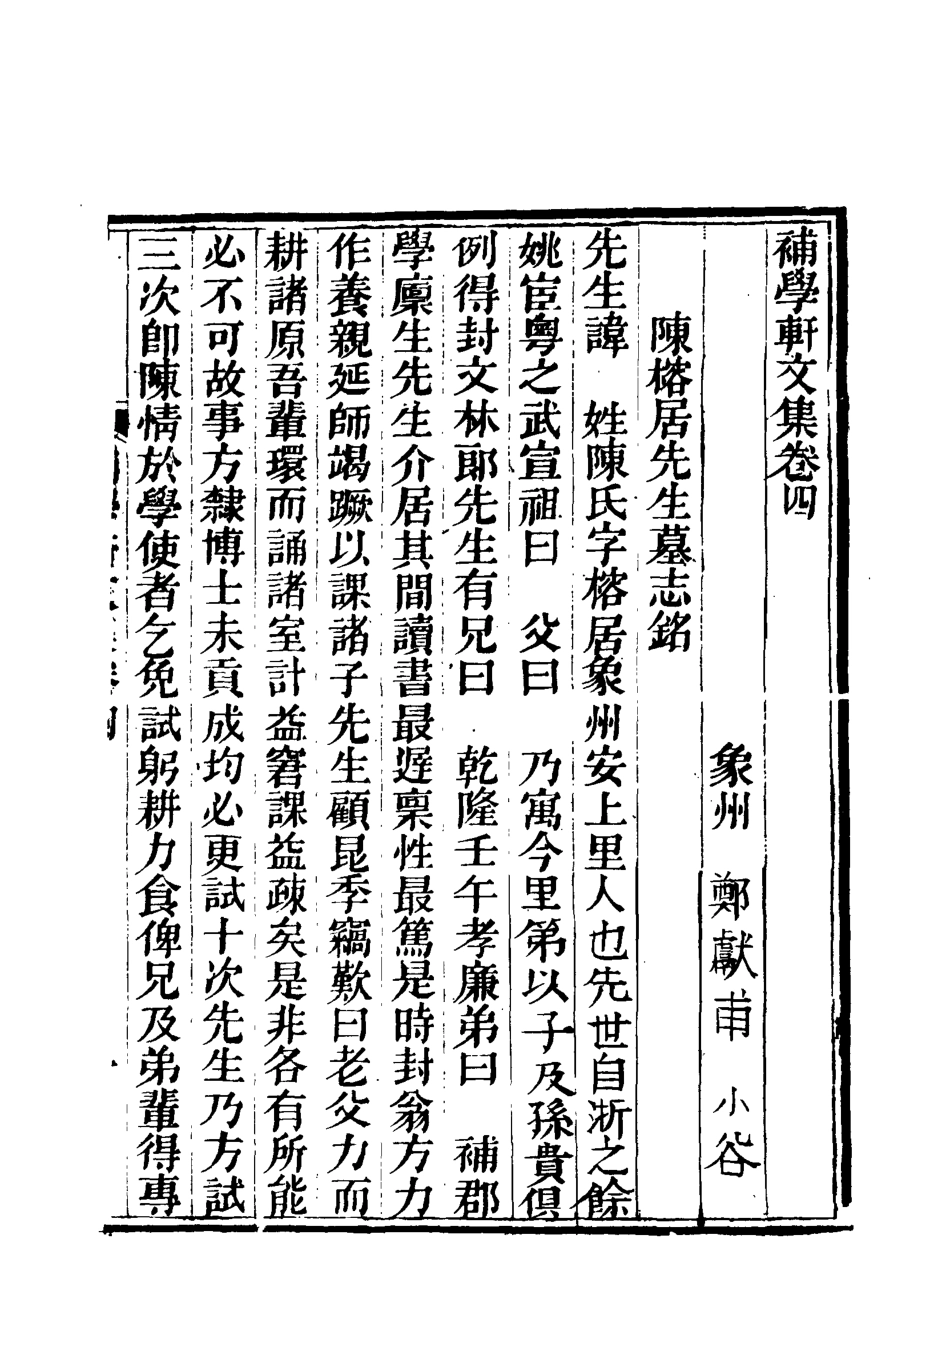 補學軒文集卷四
象州　鄭獻甫　小谷
陳榕居先生墓志銘
先生諱　姓陳氏字榕居象州安上里人也先世自浙之餘
姚宦粵之武宣祖曰　父曰　乃寓今里第以子及孫貴俱
例得封文林郎先生有兄曰　乾隆壬午孝廉弟曰　補郡
學廩生先生介居其間讀書最遲稟性最篤是時封翁方力
作養親延師竭蹶以課諸子先生顧昆季竊歎曰老父力而
耕諸原吾輩環而誦諸室計益窘課益疎矣是非各有所能
必不可故事方隸博士未貢成均必更試十次先生乃方試
三次卽陳情於學使者乞免試躬耕力食俾兄及弟輩得專